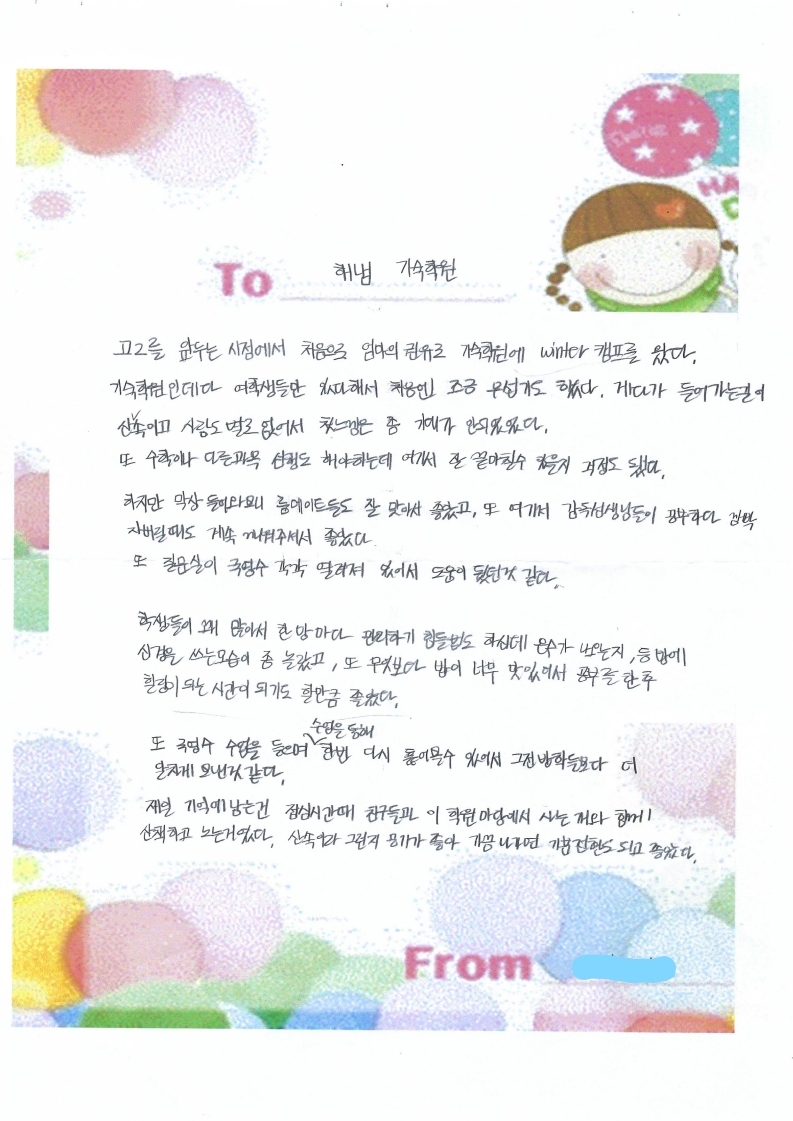 To 해냄 기숙학원
고2를 앞두는 시점에서 처음으로 엄마의 권유로 기숙학원에 winter 캠프를 왔다.
기숙학원인데다 여학생들만 있다해서 처음엔 조금 무섭기도 했다. 게다가 들어가는길이
산속이고 사람도 별로 없어서 첫느낌은 좀 기대가 안되었었다.
또 수학이나 다른과목 선행도 해야하는데 여기서 잘 끝마칠수 있을지 걱정도 됐다.
하지만 막상 들어와보니 룸메이트들도 잘 맞아서 좋았고, 또 여기서 감독선생님들이 공부하다 깜빡
자버릴때도 계속 깨워주셔서 좋았다.
또 질문실이 국영수 각각 딸려져 있어서 도움이 됐던것 같다.
학생들이 꽤 많아서 한 방마다 관리하기 힘들법도 하신데 온수가 나오는지, 등 방에
신경을 쓰는모습이 좀 놀랐고, 또 무엇보다 밥이 너무 맛있어서 공부를 한 후
힐링이 되는 시간이 되기도 할만큼 좋았다.
또 국영수 수업을 들으며 수업을 통해 한번 다시 훑어볼수 있어서 그전 방학들보다 더
알차게 보낸것 같다.
제일 기억에 남는건 점심시간때 친구들과 이 학원 마당에서 사는 개와 함께
산책하고 노는거였다. 산속이라 그런지 공기가 좋아 가끔 나가면 기분전환도 되고 좋았다.
From